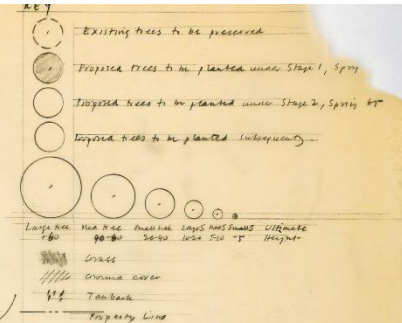 KEY
Existing trees to be preserved
Proposed trees to be planted under Stage 1, Spring
Proposed trees to be planted under Stage 2, Spring
Proposed trees to be planted subsequently
Large tree Med tree Small tree Large S Med S Small S Ultimate
+60 40-60 20-40 10-20 5-10 -5 Height
Grass
Ground cover
Tanbark
Property Line